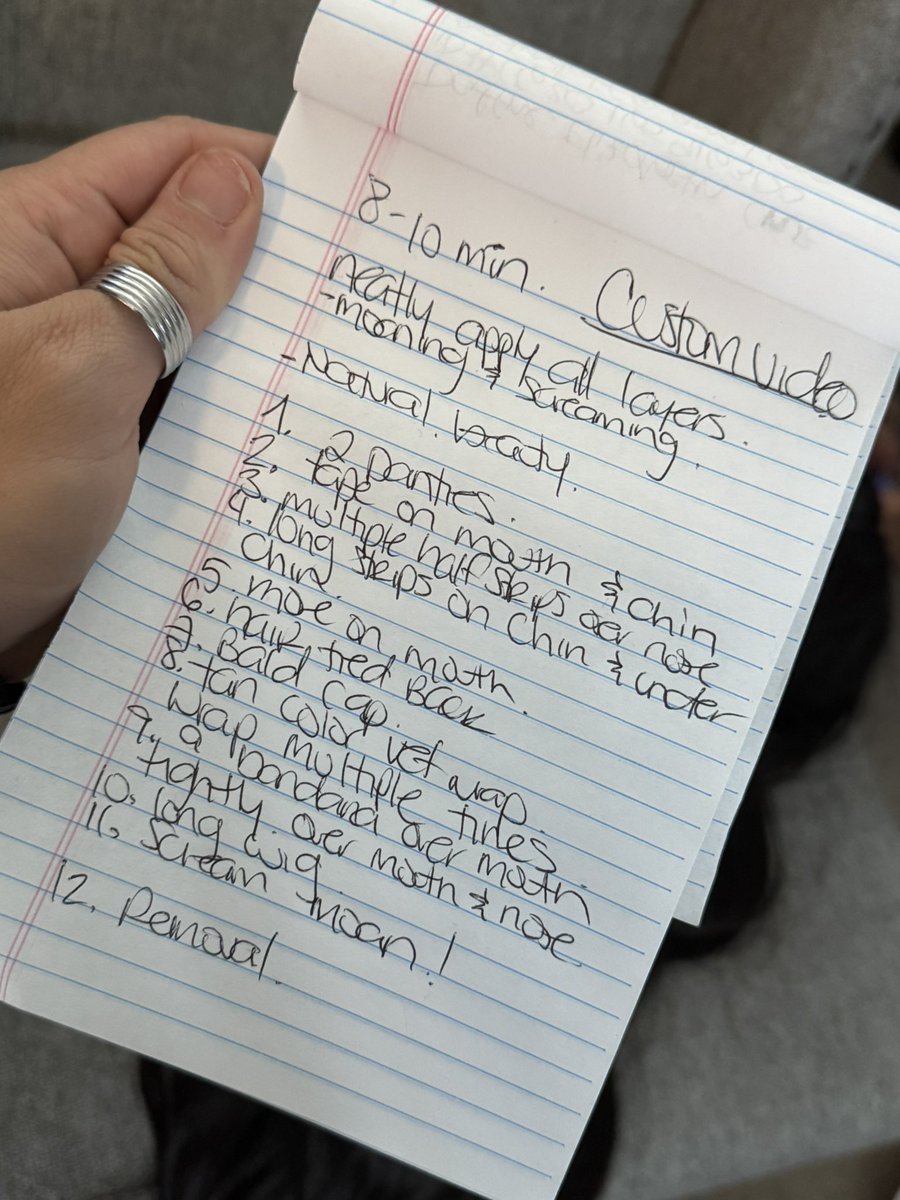 Custom Video
8-10 min.
neatly apply all layers.
-moaning & screaming.
-Natural beauty.
1. 2 panties.
2. tape on mouth & chin
3. multiple half strips over nose
4. long strips on chin & under
chin.
5. more on mouth.
6. hair tied BACK
7. Bald cap.
8. tan color vet wrap.
wrap multiple times
9. a bandana over mouth.
tightly. over mouth & nose
10. long wig.
11. scream & moan!
12. Removal.